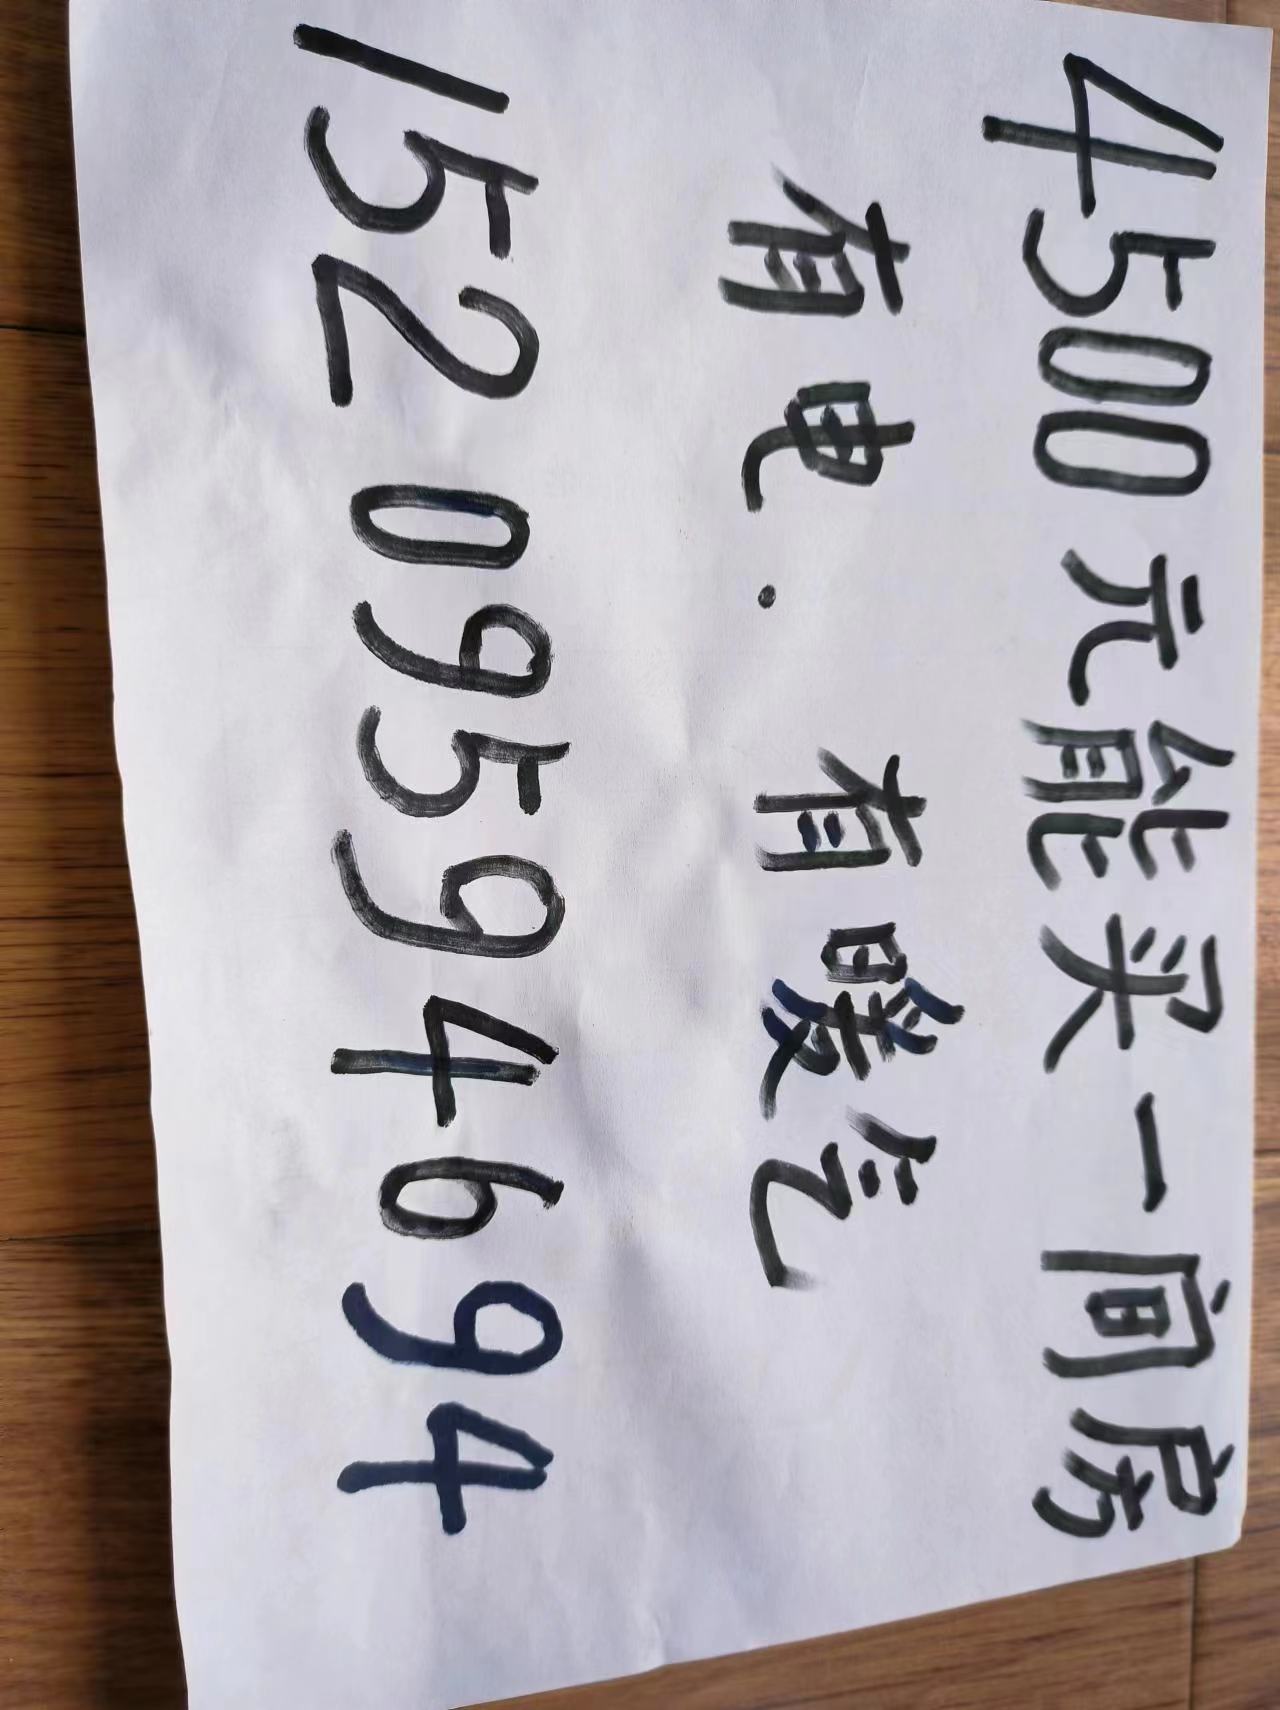 4500元能买一间房
有电.有暖气
15209594694